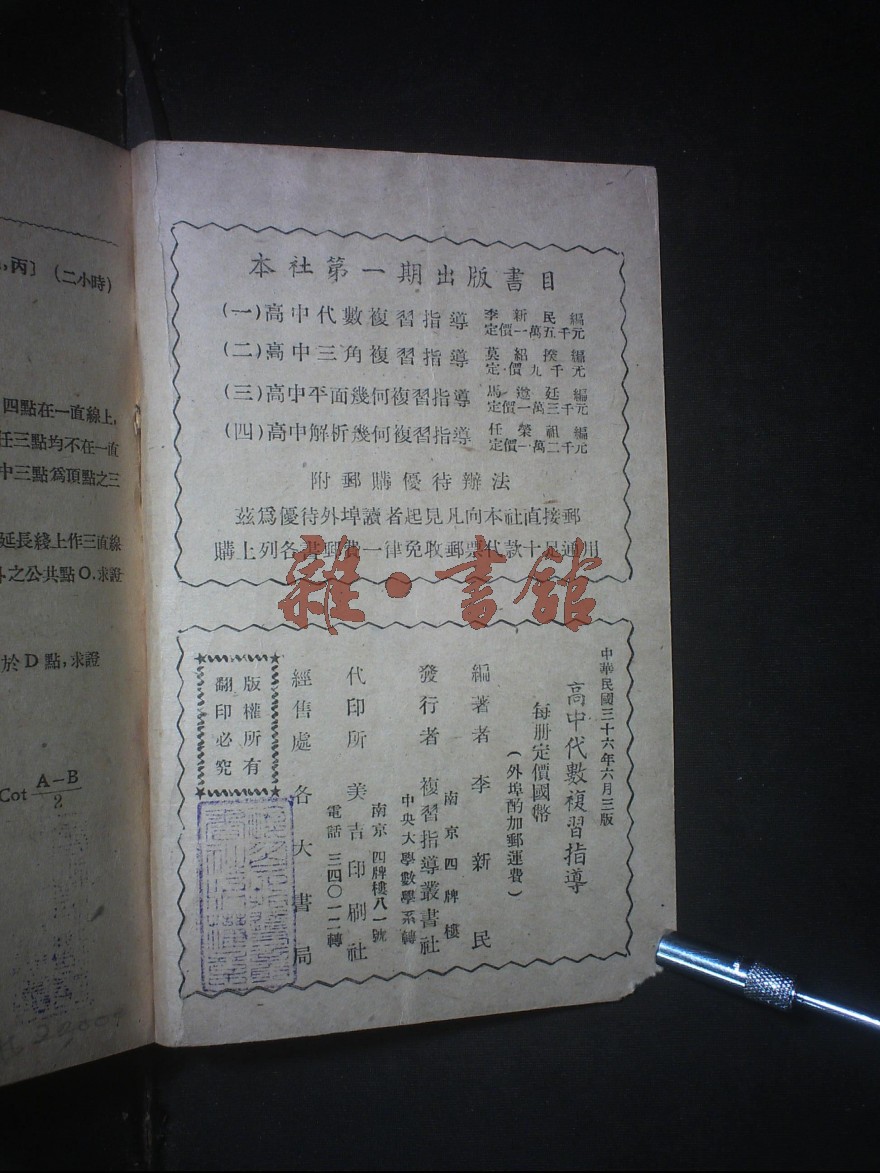 丙〕(二小時)
四點在一直線上,
任三點均不在一直
中三點爲頂點之三
延長綫上作三直線
之公共點O.求證
於D點,求證
Cot A-B/2
本社第一期出版書目
(一)高中代數複習指導 李新民編 定價一萬五千元
(二)高中三角複習指導 莫紹揆編 定價九千元
(三)高中平面幾何複習指導 馬遵廷編 定價一萬三千元
(四)高中解析幾何複習指導 任榮祖編 定價一萬二千元
附郵購優待辦法
茲爲優待外埠讀者起見凡向本社直接郵
購上列各書郵費一律免收郵票代款十足運用
雜·書館
中華民國三十六年六月三版
高中代數複習指導
每册定價國幣
(外埠酌加郵運費)
編著者 李新民
南京四牌樓
發行者 複習指導叢書社
中央大學數學系轉
南京四牌樓八一號
代印所 美吉印刷社
電話 三四〇一二轉
經售處 各大書局
版權所有
翻印必究